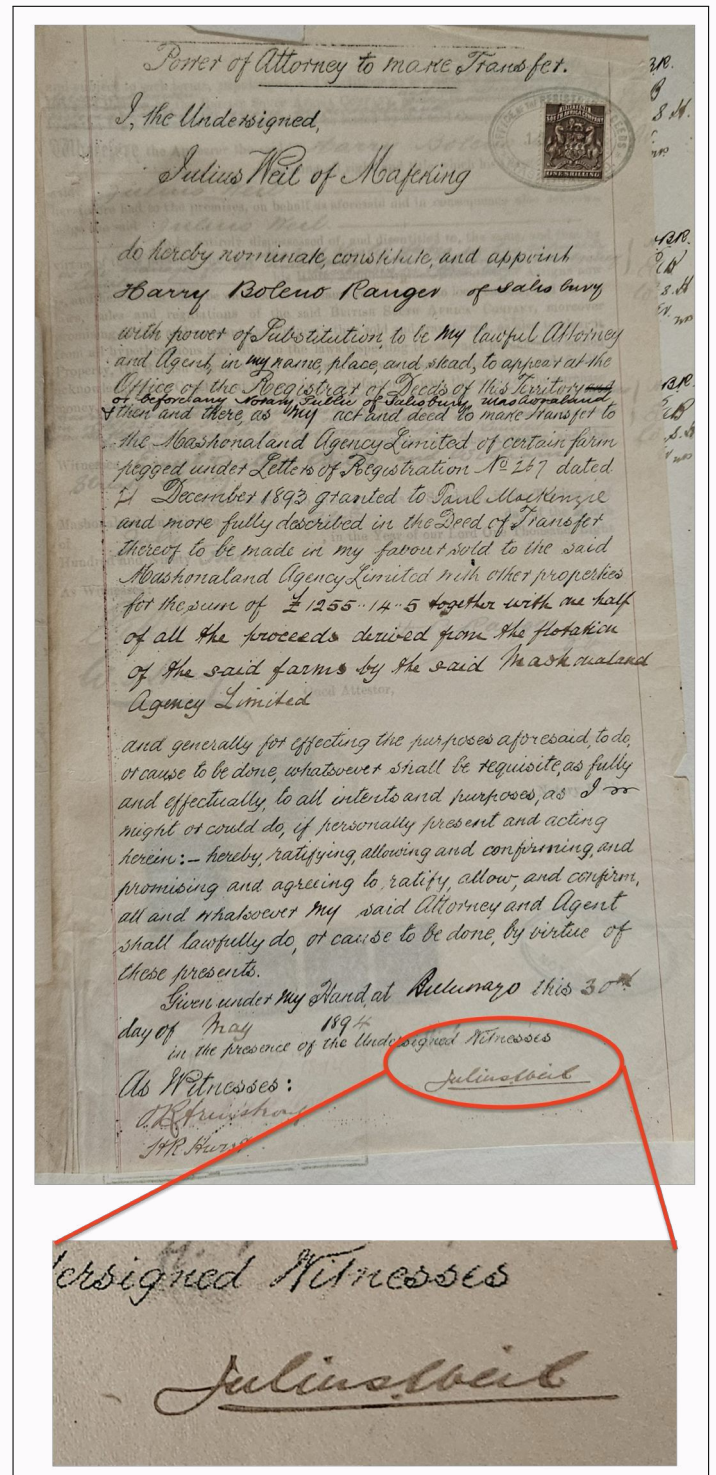 Power of Attorney to make Transfer.
I, the Undersigned,
Julius Weil of Mafeking
do hereby nominate, constitute, and appoint
Harry Boleno Ranger of Salisbury
with power of Substitution, to be my lawful Attorney
and Agent, in my name, place, and stead, to appear at the
Office of the Registrar of Deeds of this Territory and
or before any Notary Public of Salisbury Mashonaland
then and there, as my act and deed to make transfer to
the Mashonaland Agency Limited of certain farm
pegged under Letters of Registration No 267 dated
December 1893 granted to Paul MacKenzie
and more fully described in the Deed of Transfer
thereof to be made in my favour sold to the said
Mashonaland Agency Limited with other properties
for the sum of £1255..14..5 together with one half
of all the proceeds derived from the flotation
of the said farms by the said Mashonaland
Agency Limited
and generally for effecting the purposes aforesaid, to do,
or cause to be done, whatsoever shall be requisite, as fully
and effectually, to all intents and purposes, as I
might or could do, if personally present and acting
herein:- hereby, ratifying, allowing and confirming, and
promising and agreeing to, ratify, allow, and confirm,
all and whatsoever my said Attorney and Agent
shall lawfully do, or cause to be done, by virtue of
these presents.
Given under my Hand at Buluwayo this 30th
day of May 1894
in the presence of the Undersigned Witnesses
Julius Weil
As Witnesses:
H R Hurst
ONE SHILLING
ersigned Witnesses
Julius Weil